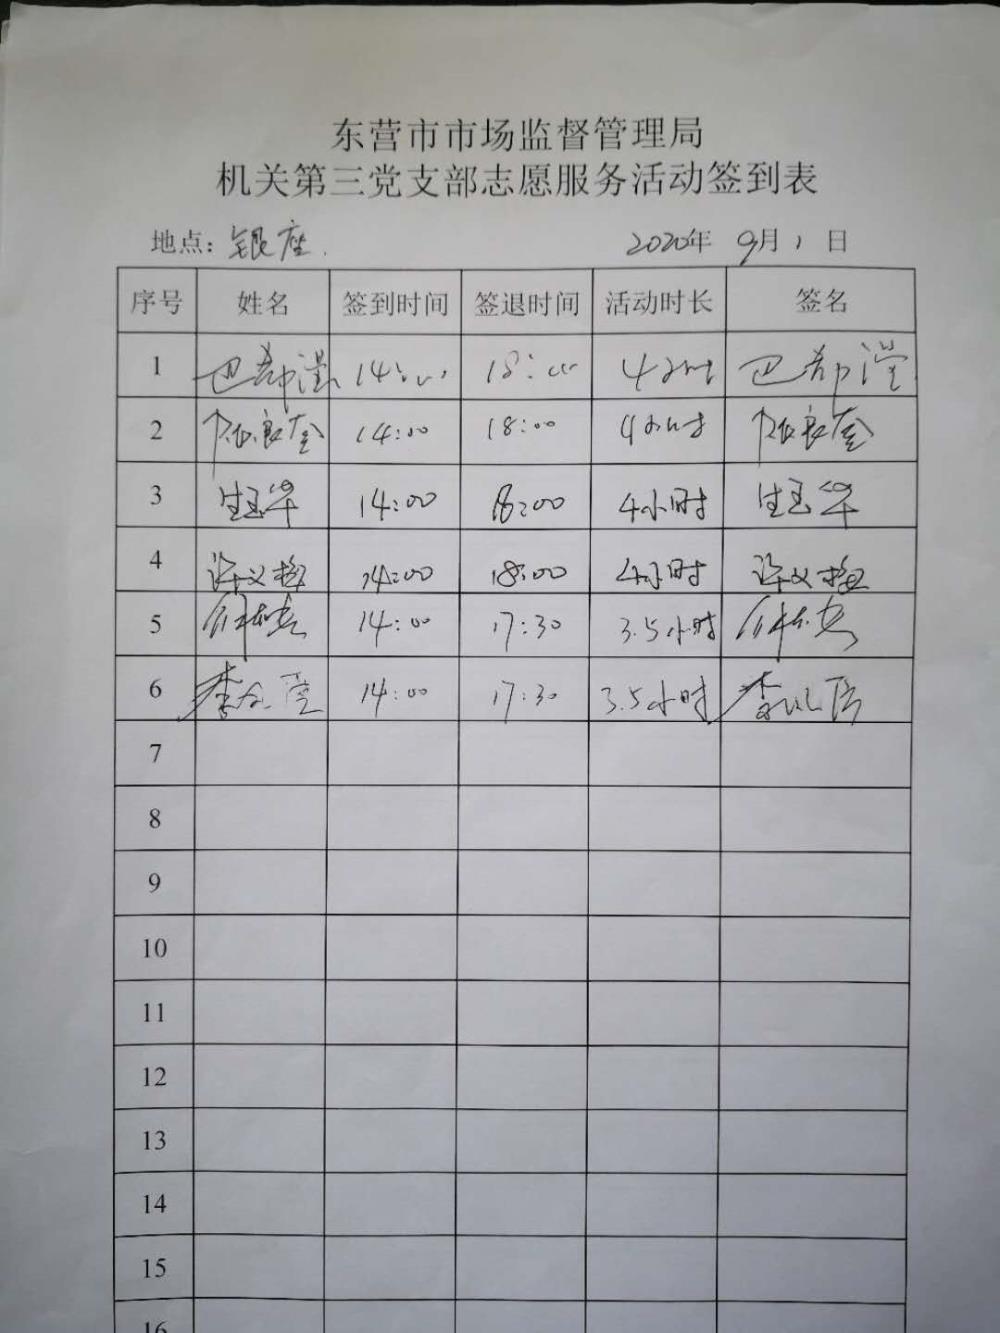 东营市市场监督管理局
机关第三党支部志愿服务活动签到表
地点：银座. 2020年 9月 1 日
序号 姓名 签到时间 签退时间 活动时长 签名
1 14:00 18:00 4小时
2 14:00 18:00 4小时
3 生玉华 14:00 18:00 4小时 生玉华
4 14:00 18:00 4小时
5 14:00 17:30 3.5小时
6 14:00 17:30 3.5小时
7
8
9
10
11
12
13
14
15
16